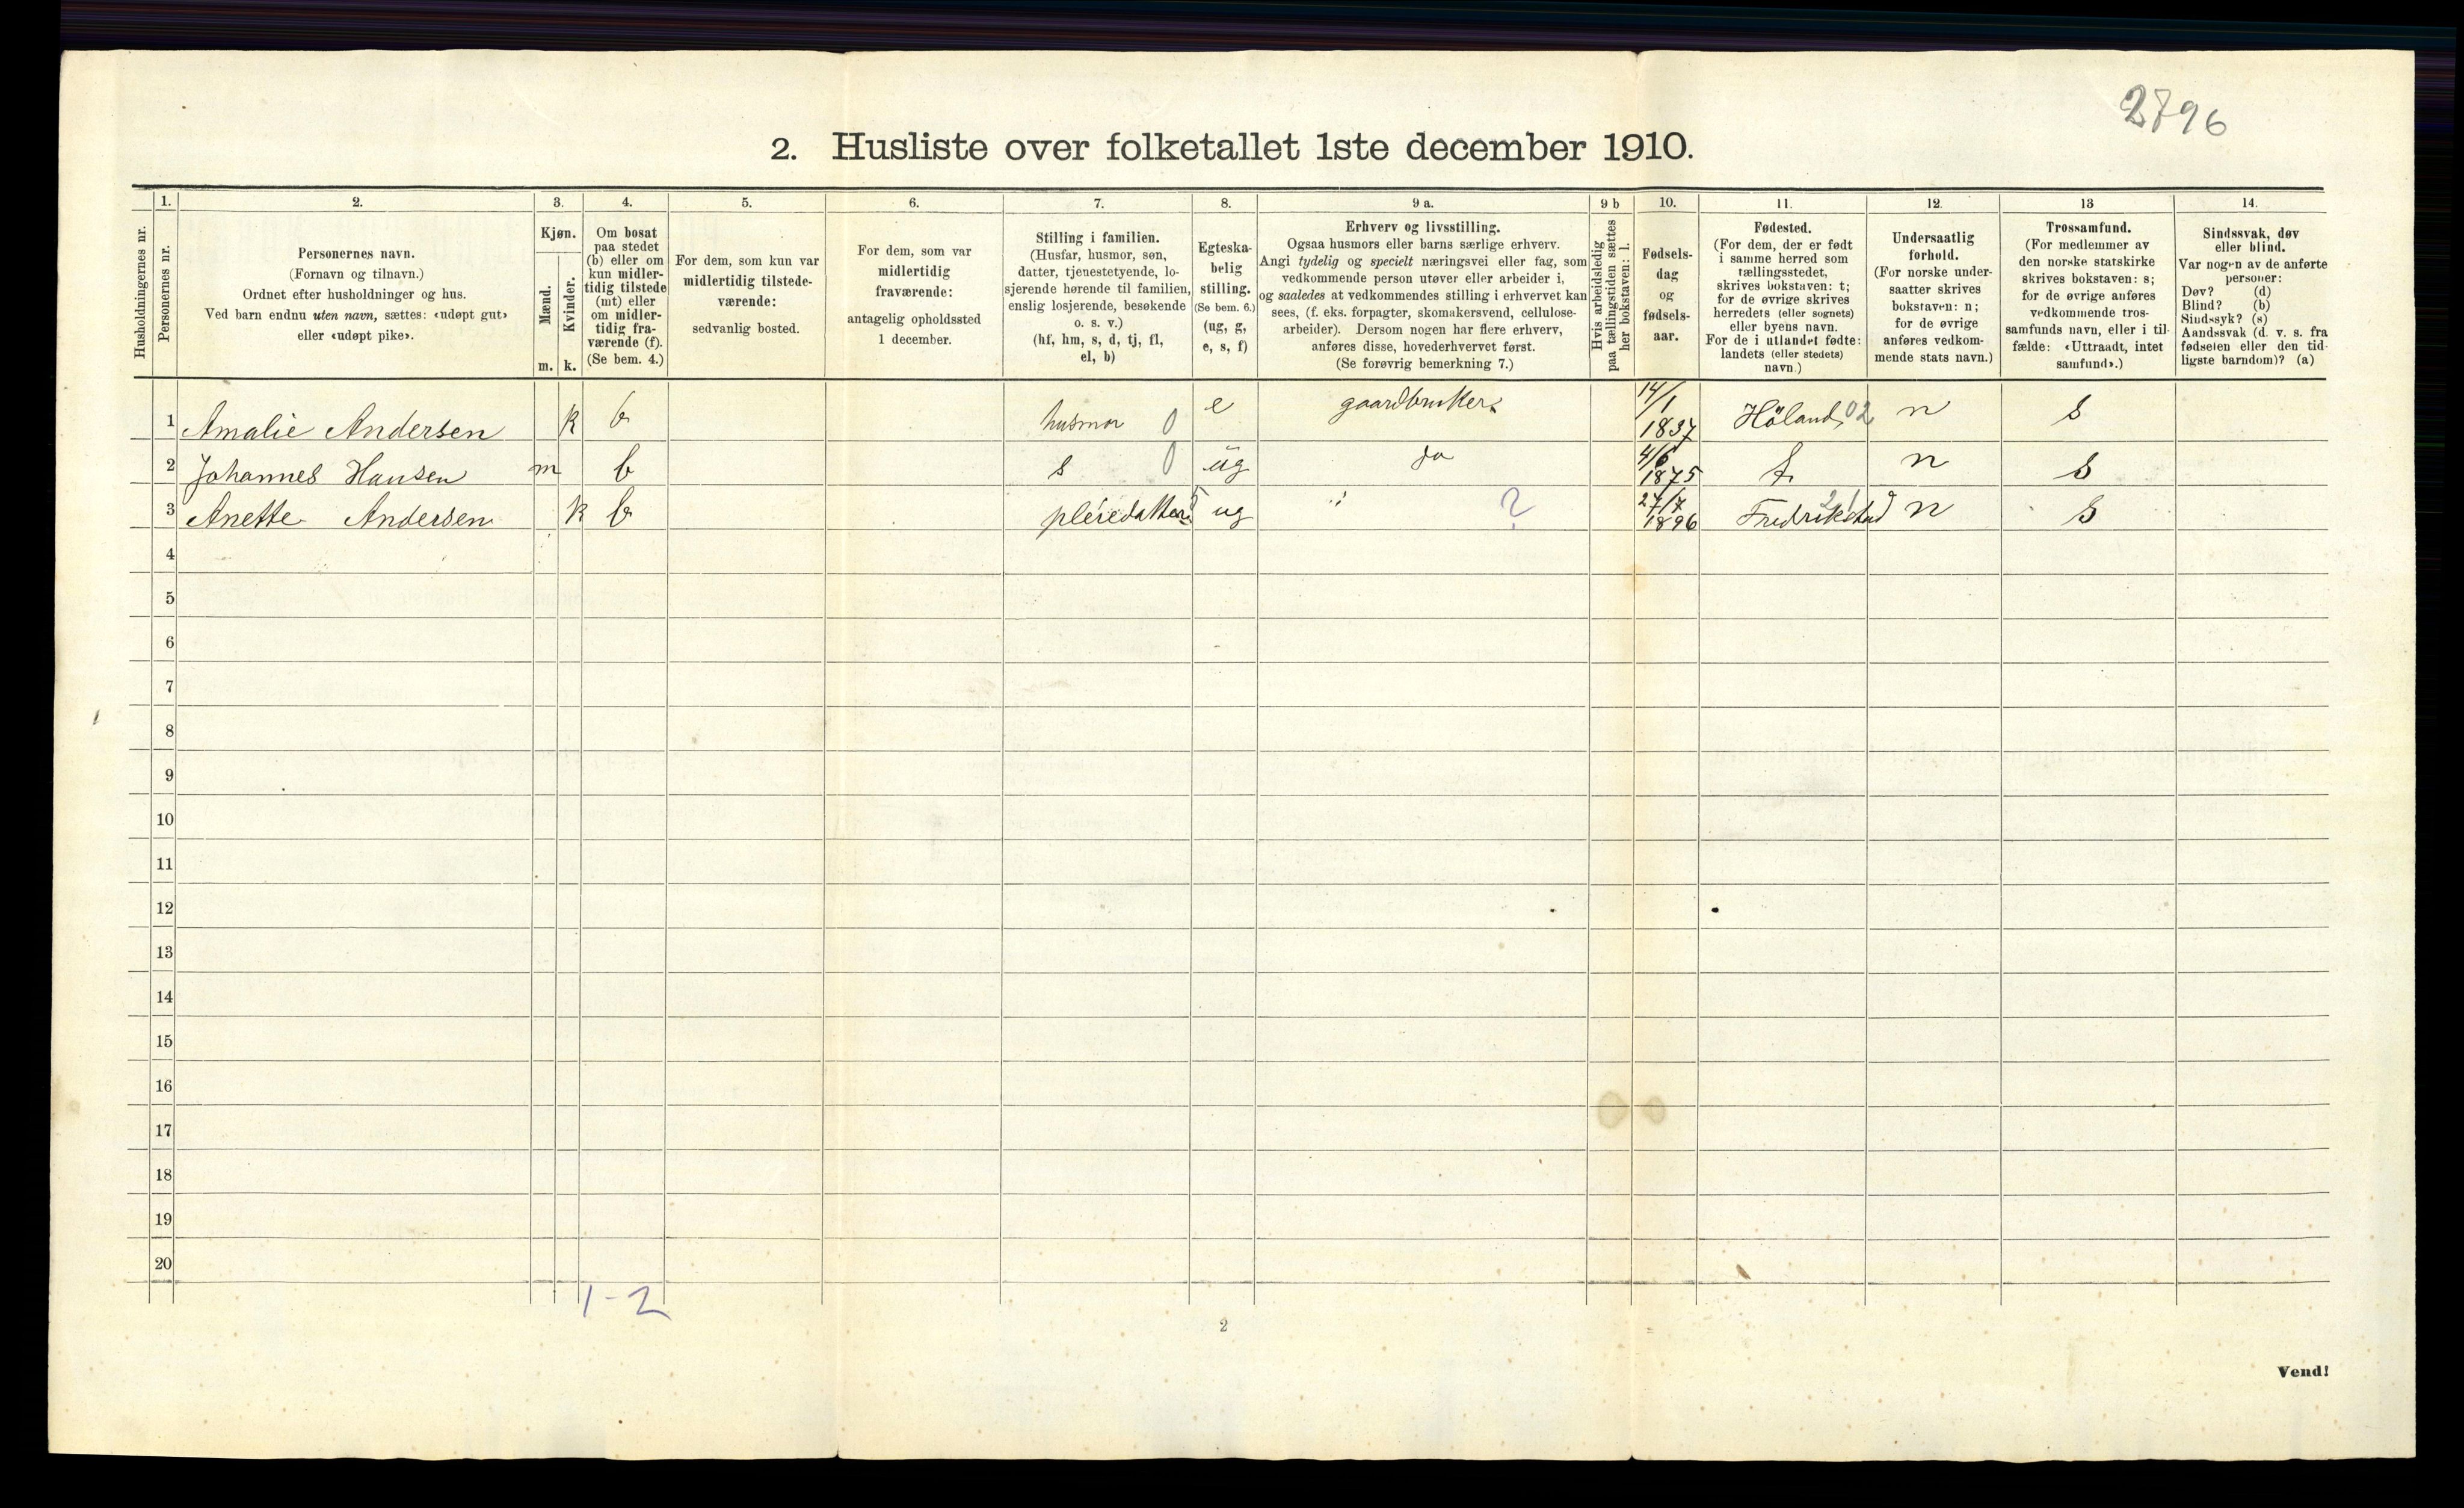 2796
2. Husliste over folketallet 1ste december 1910.
Husholdningernes nr.
1.
Personernes nr.
2.
Personernes navn.
(Fornavn og tilnavn.)
Ordnet efter husholdninger og hus.
Ved barn endnu uten navn, sættes: «udøpt gut»
eller «udøpt pike».
3.
Kjøn.
Mænd.
m.
Kvinder.
k.
4.
Om bosat
paa stedet
(b) eller om
kun midler-
tidig tilstede
(mt) eller
om midler-
tidig fra-
værende (f).
(Se bem. 4.)
5.
For dem, som kun var
midlertidig tilstede-
værende:
sedvanlig bosted.
6.
For dem, som var
midlertidig
fraværende:
antagelig opholdssted
1 december.
7.
Stilling i familien.
(Husfar, husmor, søn,
datter, tjenestetyende, lo-
sjerende hørende til familien,
enslig losjerende, besøkende
o. s. v.)
(hf, hm, s, d, tj, fl,
el, b)
8.
Egteska-
belig
stilling.
(Se bem. 6.)
(ug, g,
e, s, f)
9 a.
Erhverv og livsstilling.
Ogsaa husmors eller barns særlige erhverv.
Angi tydelig og specielt næringsvei eller fag, som
vedkommende person utøver eller arbeider i,
og saaledes at vedkommendes stilling i erhvervet kan
sees, (f. eks. forpagter, skomakersvend, cellulose-
arbeider). Dersom nogen har flere erhverv,
anføres disse, hovederhvervet først.
(Se forøvrig bemerkning 7.)
9 b
Hvis arbeidsledig
paa tællingstiden sættes
her bokstaven: l.
10.
Fødsels-
dag
og
fødsels-
aar.
11.
Fødested.
(For dem, der er født
i samme herred som
tællingsstedet,
skrives bokstaven: t;
for de øvrige skrives
herredets (eller sognets)
eller byens navn.
For de i utlandet fødte:
landets (eller stedets)
navn.)
12.
Undersaatlig
forhold.
(For norske under-
saatter skrives
bokstaven: n;
for de øvrige
anføres vedkom-
mende stats navn.)
13
Trossamfund.
(For medlemmer av
den norske statskirke
skrives bokstaven: s;
for de øvrige anføres
vedkommende tros-
samfunds navn, eller i til-
fælde: «Uttraadt, intet
samfund».)
14.
Sindssvak, døv
eller blind.
Var nogen av de anførte
personer:
Døv? (d)
Blind? (b)
Sindssyk? (s)
Aandssvak (d. v. s. fra
fødselen eller den tid-
ligste barndom)? (a)
1 Amalie Andersen k b husmor 0 e gaardbruker 14/1 1837 Höland 02 n s
2 Johannes Hansen m b s 0 ug do 4/6 1875 t n s
3 Anette Andersen k b pleiedatter ug ? 27/7 1896 Fredrikstad n s
4
5
6
7
8
9
10
11
12
13
14
15
16
17
18
19
20
1-2
2
Vend!